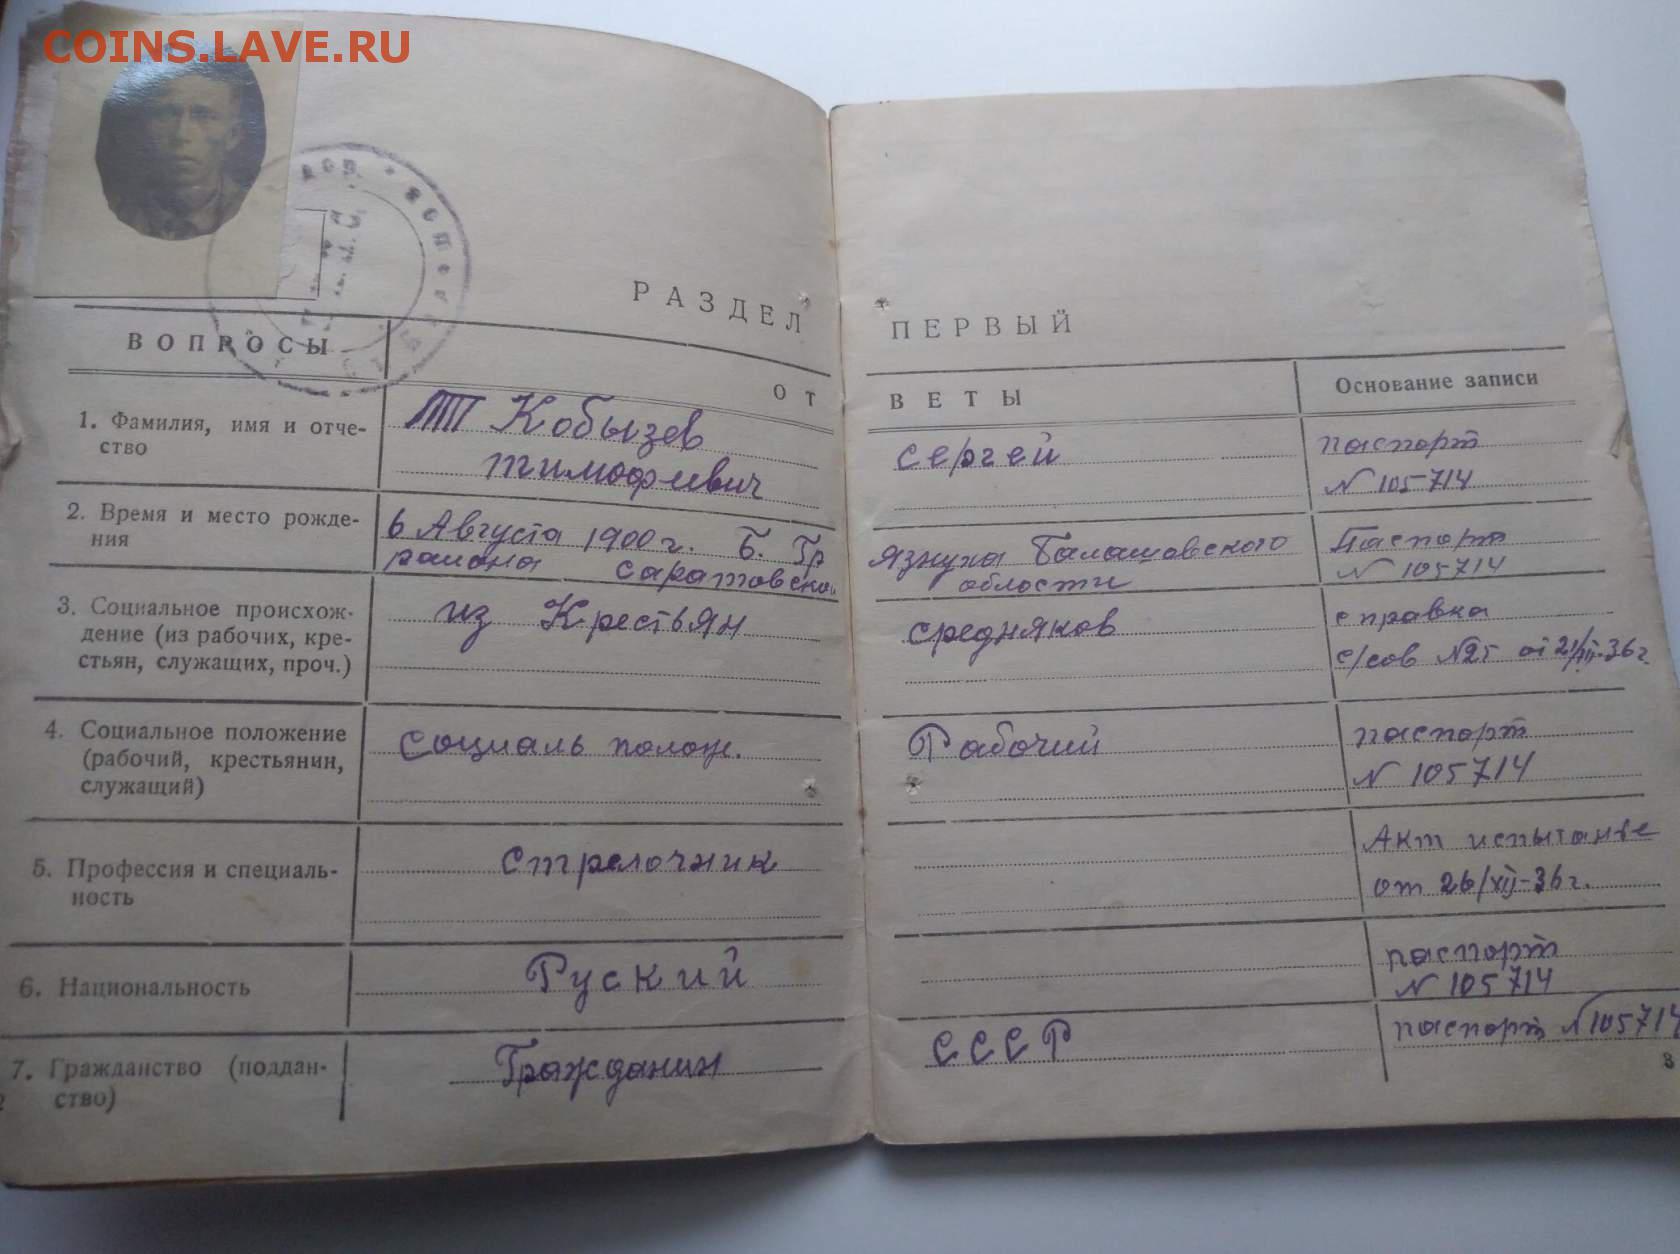 COINS.LAVE.RU
РАЗДЕЛ ПЕРВЫЙ
ВОПРОСЫ
ОТВЕТЫ
Основание записи
1. Фамилия, имя и отче-
ство
Кобызев Сергей
тимофеевич
паспорт
№ 105714
2. Время и место рожде-
ния
6 Августа 1900 г. Б. Гр язнуха Балашовского
района саратовской области
Паспорт
№ 105714
3. Социальное происхож-
дение (из рабочих, кре-
стьян, служащих, проч.)
из Крестьян середняков
справка
с/сов №25 от 21/XII-36г.
4. Социальное положение
(рабочий, крестьянин,
служащий)
социаль полож. Рабочий
паспорт
№ 105714
5. Профессия и специаль-
ность
стрелочник
Акт испытание
от 26/XII-36г.
6. Национальность
Руский
паспорт
№ 105714
7. Гражданство (поддан-
ство)
Гражданин СССР
паспорт № 105714
2
3